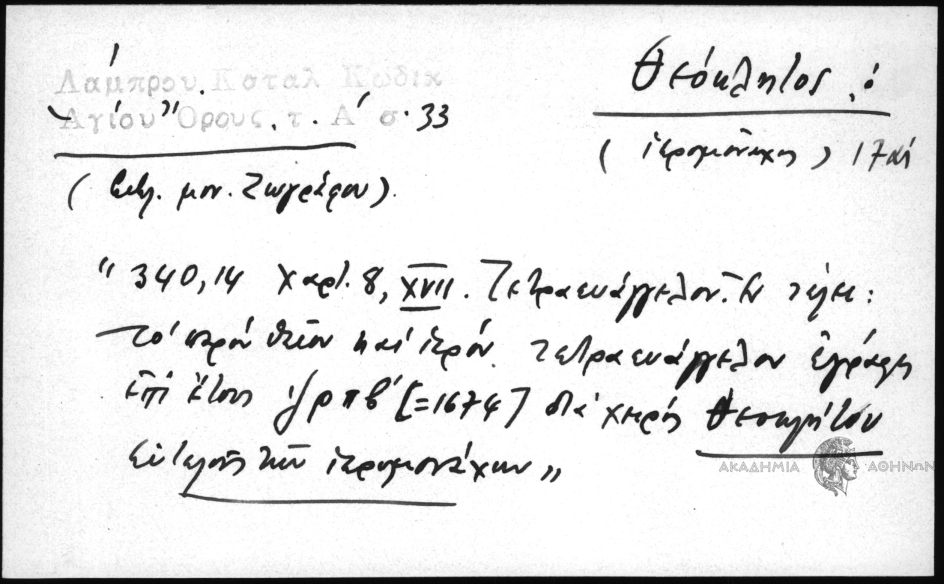 Λάμπρου Καταλ Κωδικ
Αγίου Όρους, τ. Α' σ. 33
Θεόκλητος, ὁ
(ἱερομόναχος) 17 αἰ
(Βιβλ. μον. Ζωγράφου).
"340,14 Χαρτ. 8, XVII. Τετραευάγγελον. Ἐν τέλει:
Τὸ παρὸν θεῖον καὶ ἱερὸν τετραευάγγελον ἐγράφη
ἐπὶ ἔτους ζρπβ' [=1674] διὰ χειρὸς Θεοκλήτου
εὐτελοῦς τῶν ἱερομονάχων"
ΑΚΑΔΗΜΙΑ ΑΘΗΝΩΝ